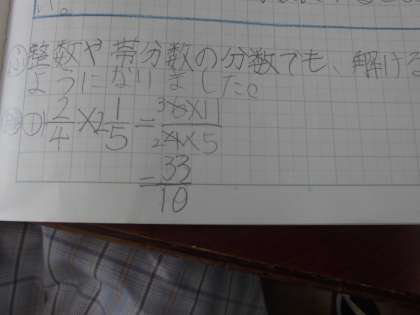 ③整数や帯分数の分数でも、解ける
ようになりました。
① 1 2/4 × 2 1/5 = 6×11 / 4×5
= 33/10